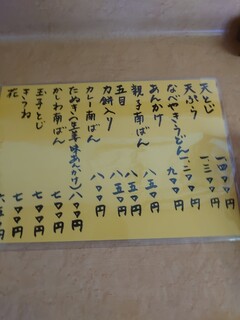 天とじ 一四〇〇円
天ぷら 一三〇〇円
なべやきうどん 一二〇〇円
あんかけ 九〇〇円
親子南ばん 八五〇円
五目 八五〇円
力餅入り 八五〇円
カレー南ばん 八〇〇円
たぬき(生姜味あんかけ) 八〇〇円
かしわ南ばん 七〇〇円
玉子とじ 七〇〇円
きつね 七〇〇円
花 六五〇円